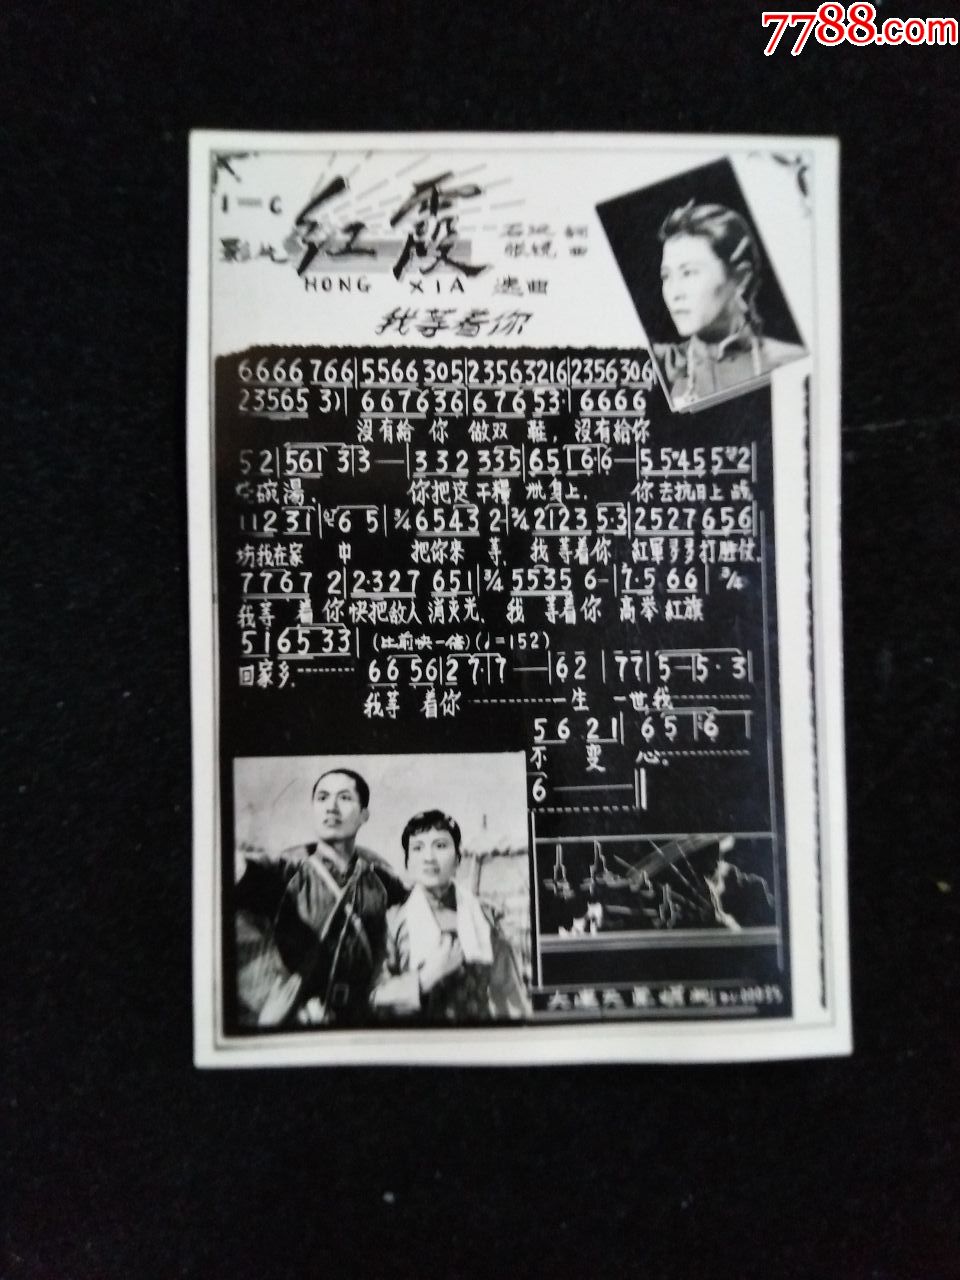 7788.com
1=C
影片 红霞
HONG XIA 选曲
石汉 词
张锐 曲
我等着你
6666 766|5566 305|23563216|2356306
23565 3)|667636|67653·|6666
沒有給 你 做双 鞋，沒有給你
52|561 33—|332 335|65 16·6—|55 455 2|
碗湯、 你把这干糧 身上、 你去抗日上战
112 31| 6 5|3/4 6543 2|3/4 2123 5·3|2527 656|
坊我在家 中 把你來 等、我 等着你 紅軍多多打胜仗、
7767 2|2·327 651|3/4 5535 6-|7·5 66| 3/4
我等 着你快把敌人消灭光、我 等着你 高举紅旗
51 6533| (比前快一倍)(♩=152)
回家乡、
66 56|2 7·7 —|62 |77|5—|5·3|
我等 着你 一生 一世我
56 21| 65 |6 |
不 变 心。
6 ———